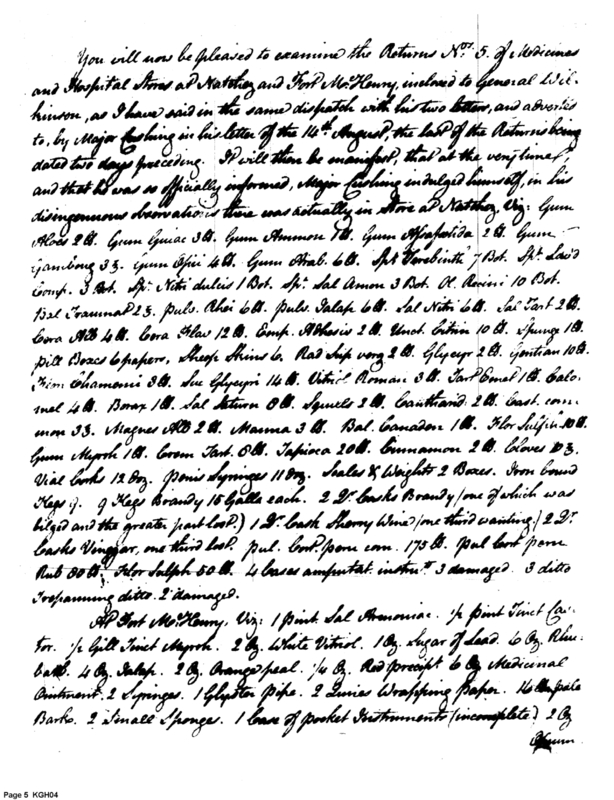 You will now be pleased to examine the Returns Nos. 5. of Medicines
and Hospital Stores at Natchez and Fort McHenry, inclosed to General Wil-
kinson, as I have said in the same dispatch with his two letters, and adverted
to, by Major Cushing in his letter of the 14th August, the last of the Returns being
dated two days preceding. It will then be manifest, that at the very time,
and that he was so officially informed, Major Cushing indulged himself, in his
disingenuous observations there was actually in Store at Natchez, Viz: Gum
Aloes 2 lb. Gum Guiac 3 lb. Gum Ammon 1 lb. Gum Assafoetida 2 lb. Gum
Gamboug 3 ℥. Gum Opii 4 lb. Gum Arab. 6 lb. Spt. Terebinth 7 Bot. Spt. Lav'd
Comp. 3 Bot. Spt. Nitri dulcis 1 Bot. Spt. Sal Amon 3 Bot. Ol. Recini 10 Bot.
Bal Traumat 2 ℥. Pulv. Rhei 6 lb. Pulv. Jalap 6 lb. Sal Nitri 6 lb. Sal Tart 2 lb.
Cera Alb 4 lb. Cera Flav 12 lb. Emp. Adhesis 2 lb. Unct. Citrin 10 lb. Spunge 1 lb.
Pill Boxes 6 papers, Sheep Skins 6. Rad Serp verg 2 lb. Glycyr 2 lb. Gentian 10 lb.
Chamomi 3 lb. Suc Glycyri 14 lb. Vitriol Roman 3 lb. Tart Emet 1 lb. Calo-
mel 4 lb. Borax 1 lb. Sal Saturn 8 lb. Squills 2 lb. Canthrand. 2 lb. Cast. com-
mon 3 ℥. Magnes Alb 2 lb. Manna 3 lb. Bal. Canaden 1 lb. Flor Sulph 10 lb.
Gum Myrrh 1 lb. Crem Tart. 8 lb. Tapioca 20 lb. Cinnamon 2 lb. Cloves 10 ℥.
Vial Corks 12 doz. Penis Syringes 11 doz. Scales & Weights 2 Boxes. Iron bound
Kegs 9. 9 Kegs Brandy 15 Galls each. 2 Qr. Casks Brandy (one of which was
bilged and the greater part lost.) 1 Qr. Cask Sherry Wine (one third wanting.) 2 Qr.
Casks Vinegar, one third lost. Pul. Cort. peru com. 175 lb. Pul Cort peru
Rub 80 lb. Flor Sulph 50 lb. 4 Cases amputat. instrut. 3 damaged. 3 ditto
Trepanning ditto 2 damaged.
At Fort McHenry, Viz: 1 pint. Sal Armoniac. ½ pint Tinct Cas-
tor. ½ Gill Tinct Myrrh. 2 Oz. White Vitriol. 1 Oz. Sugar of Lead. 6 Oz. Rhu-
barb. 4 Oz. Jalap. 2 Oz. Orange peal. ¼ Oz. Red precipt 6 Oz Medicinal
Ointment. 2 Syringes. 1 Glyster Pipe. 2 Quires Wrapping Paper. 16 lb pale
Bark. 2 Small Sponges. 1 Case of pocket Instruments (incomplete) 2 Oz
Gum
Page 5 KGH04